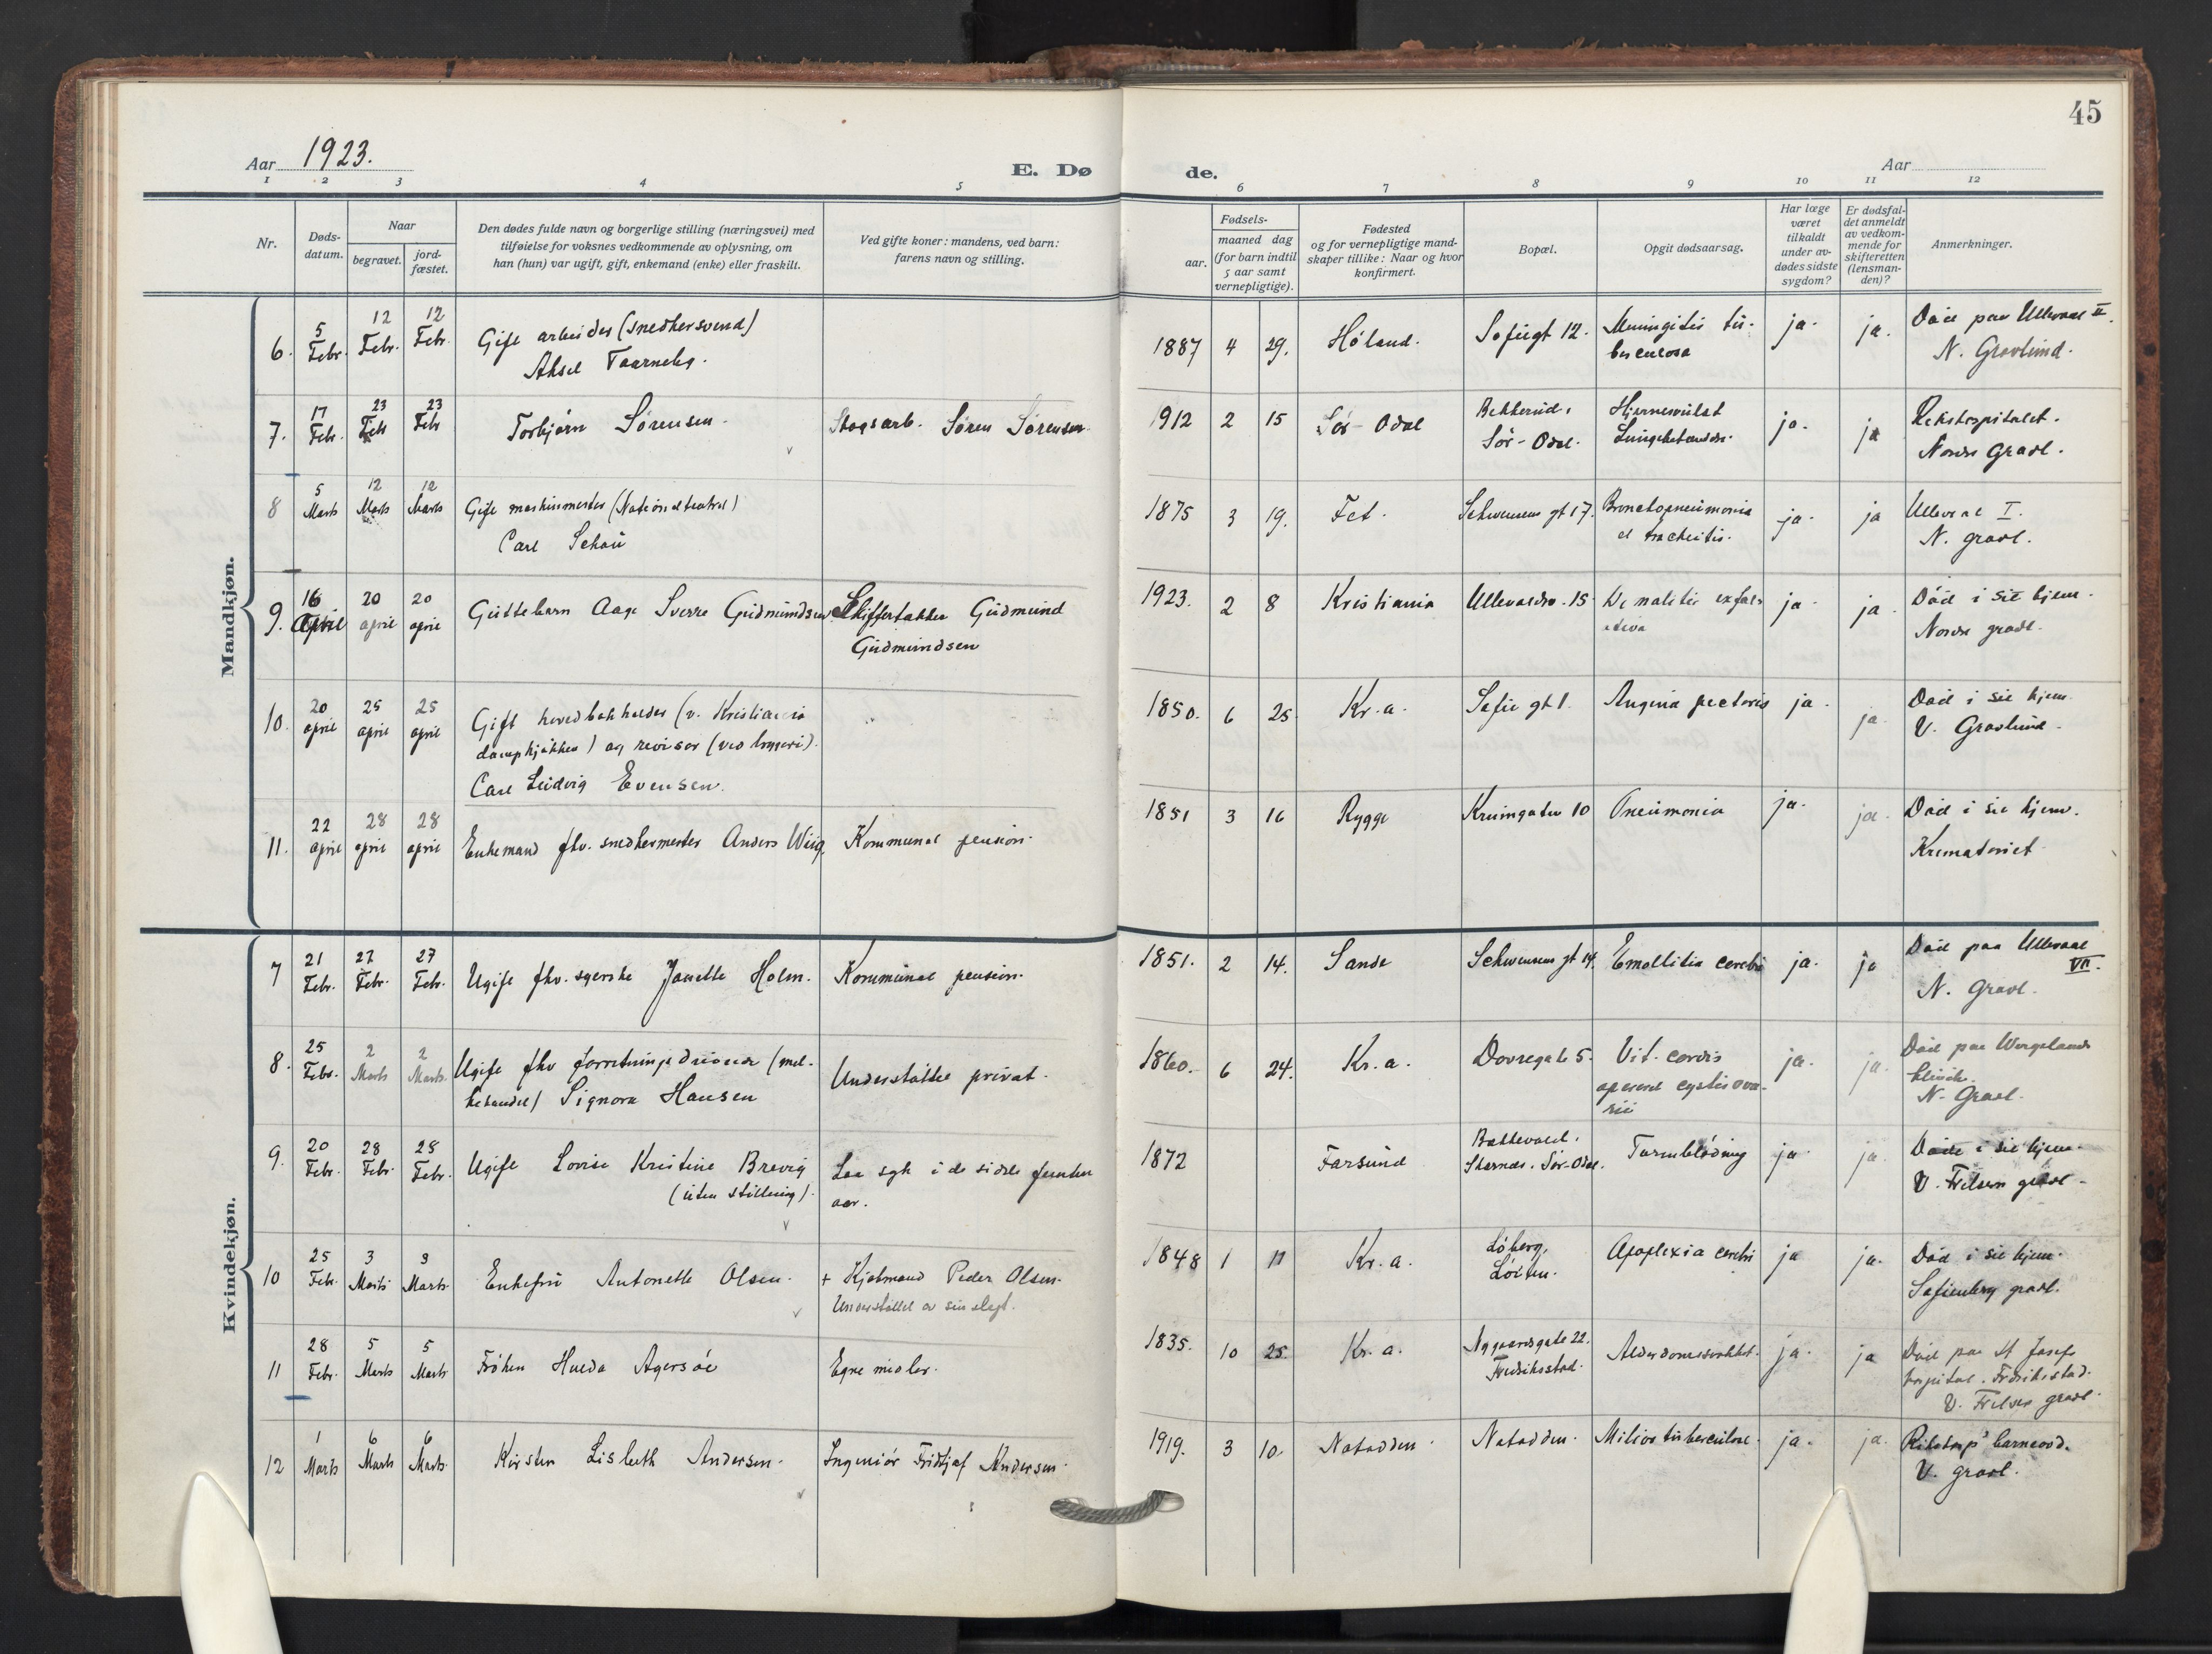 45
Aar 1923.
E. Dø
de.
Aar
1 2 3 4 5
6 7 8 9 10 11 12
Nr.
Døds-
datum.
Naar
begravet.
jord-
fæstet.
Den dødes fulde navn og borgerlige stilling (næringsvei) med
tilføielse for voksnes vedkommende av oplysning, om
han (hun) var ugift, gift, enkemand (enke) eller fraskilt.
Ved gifte koner: mandens, ved barn:
farens navn og stilling.
Fødsels-
aar.
maaned dag
(for barn indtil
5 aar samt
vernepligtige).
Fødested
og for vernepligtige mand-
skaper tillike: Naar og hvor
konfirmert.
Bopæl.
Opgit dødsaarsag.
Har læge
været
tilkaldt
under av-
dødes sidste
sygdom?
Er dødsfal-
det anmeldt
av vedkom-
mende for
skifteretten
(lensman-
den)?
Anmerkninger.
Mandkjøn.
6. 5 Febr. 12 Febr. 12 Febr.
Gift arbeider (snedkersvend)
Aksel Taarneby.
1887 4 29. Høland. Sofiegt 12.
Meningitis tu-
berculosa
ja. ja.
Død paa Ullevaal II.
N. Gravlund.
7. 17 Febr. 23 Feb 23 Feb
Torbjørn Sørensen.
Skogsarb. Søren Sørensen.
1912 2 15 Sør-Odal
Bekkerud,
Sør-Odal.
Hjernesvulst
ja. ja
Rikshospitalet.
Nordre Gravl.
8 5 Marts 12 Marts 12 Marts
Gift maskinmester (Nationalteatret)
Carl Schou
1875 3 19. Fet. Schwensens gt 17.
Bronchopneumonia
et tracheitis.
ja. ja
Ullevaal I.
N. gravl.
9. 16 April 20 april 20 april
Guttebarn Aage Sverre Gudmundsen
Skiffertækker Gudmund
Gudmundsen
1923. 2 8 Kristiania Ullevaalsv. 15
ja. ja.
Død i sit hjem.
Nordre gravl.
10. 20 april 25 april 25 april
Gift hovedbokholder (v. Kristiania
dampkjøkken) og revisor (ved bryggeri).
Carl Ludvig Evensen.
1850. 6 25 Kr.a. Sofie gt 1. Angina pectoris ja. ja.
Død i sit hjem.
V. Gravlund.
11. 22 april 28 april 28 april
Enkemand fhv. snedkermester Anders Wiig.
Kommunal pension.
1851 3 16 Rygge Krumgaten 10 Pneumonia ja. ja.
Død i sit hjem.
Krematoriet
Kvindekjøn.
7 21 Febr. 27 Febr. 27 Febr.
Ugift fhv. syerske Janette Holm.
Kommunal pension.
1851. 2 14. Sande Schwensens gt 14. Emollitio cerebri ja. ja
Død paa Ullevaal
VII.
N. Gravl.
8. 25 Febr. 2 Marts 2 Marts
Ugift fhv forretningsdrivende (mel-
kehandel) Signora Hansen
Understøttet privat.
1860. 6 24. Kr.a. Dovregate 5.
Vit. cordis
operert cystis ova-
rii
ja. ja.
Død paa Wergelands
klinik.
N. Gravl.
9. 20 Febr. 28 Febr. 28 Febr.
Ugift Lovise Kristine Brevig
(uten stilling).
Laa syk i de sidste femten
aar.
1872 Farsund
Skarnes. Sør-Odal.
Tarmblødning ja. ja.
Døde i sit hjem.
V. Frelsers gravl.
10 25 Febr. 3 Marts 3 Marts
Enkefru Antonette Olsen.
+ Kjøbmand Peder Olsen.
Understøttet av sin slegt.
1848 1 11 Kr.a.
Løberg,
Løiten.
Apoplexia cerebri ja ja.
Død i sit hjem.
Sofienberg gravl.
11 28 Febr. 5 Marts 5 Marts
Frøken Hulda Agersøe
Egne midler.
1835. 10 25. Kr.a.
Nygaardsgate 22.
Fredriksstad.
Alderdomssvakhet. ja. ja
Død paa St Josefs
hospital. Fredriksstad.
V. Frelsers gravl.
12 1 Marts 6 Marts 6 Marts
Kirsten Lisbeth Andersen.
Ingeniør Fridtjof Andersen.
1919. 3 10. Notodden. Notodden. Miliær tuberculose. ja. ja.
Rikshosp' barneavd.
V. gravl.